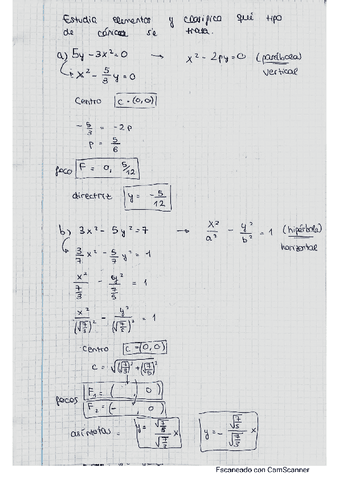 Estudia elementos y clasifica qué tipo
de cónica se trata.
a) 5y - 3x² = 0 → x² - 2py = 0 (parábola)
vertical
x² - 5/3 y = 0
Centro C = (0,0)
- 5/3 = -2p
p = 5/6
foco F = 0, 5/12
directriz y = - 5/12
b) 3x² - 5y² = 7 → x²/a² - y²/b² = 1 (hipérbola)
horizontal
3/7 x² - 5/7 y² = 1
x²/(√7/3)² - y²/(√7/5)² = 1
Centro C = (0,0)
focos F₁ = ( , 0)
F₂ = (- , 0)
asíntotas
Escaneado con CamScanner